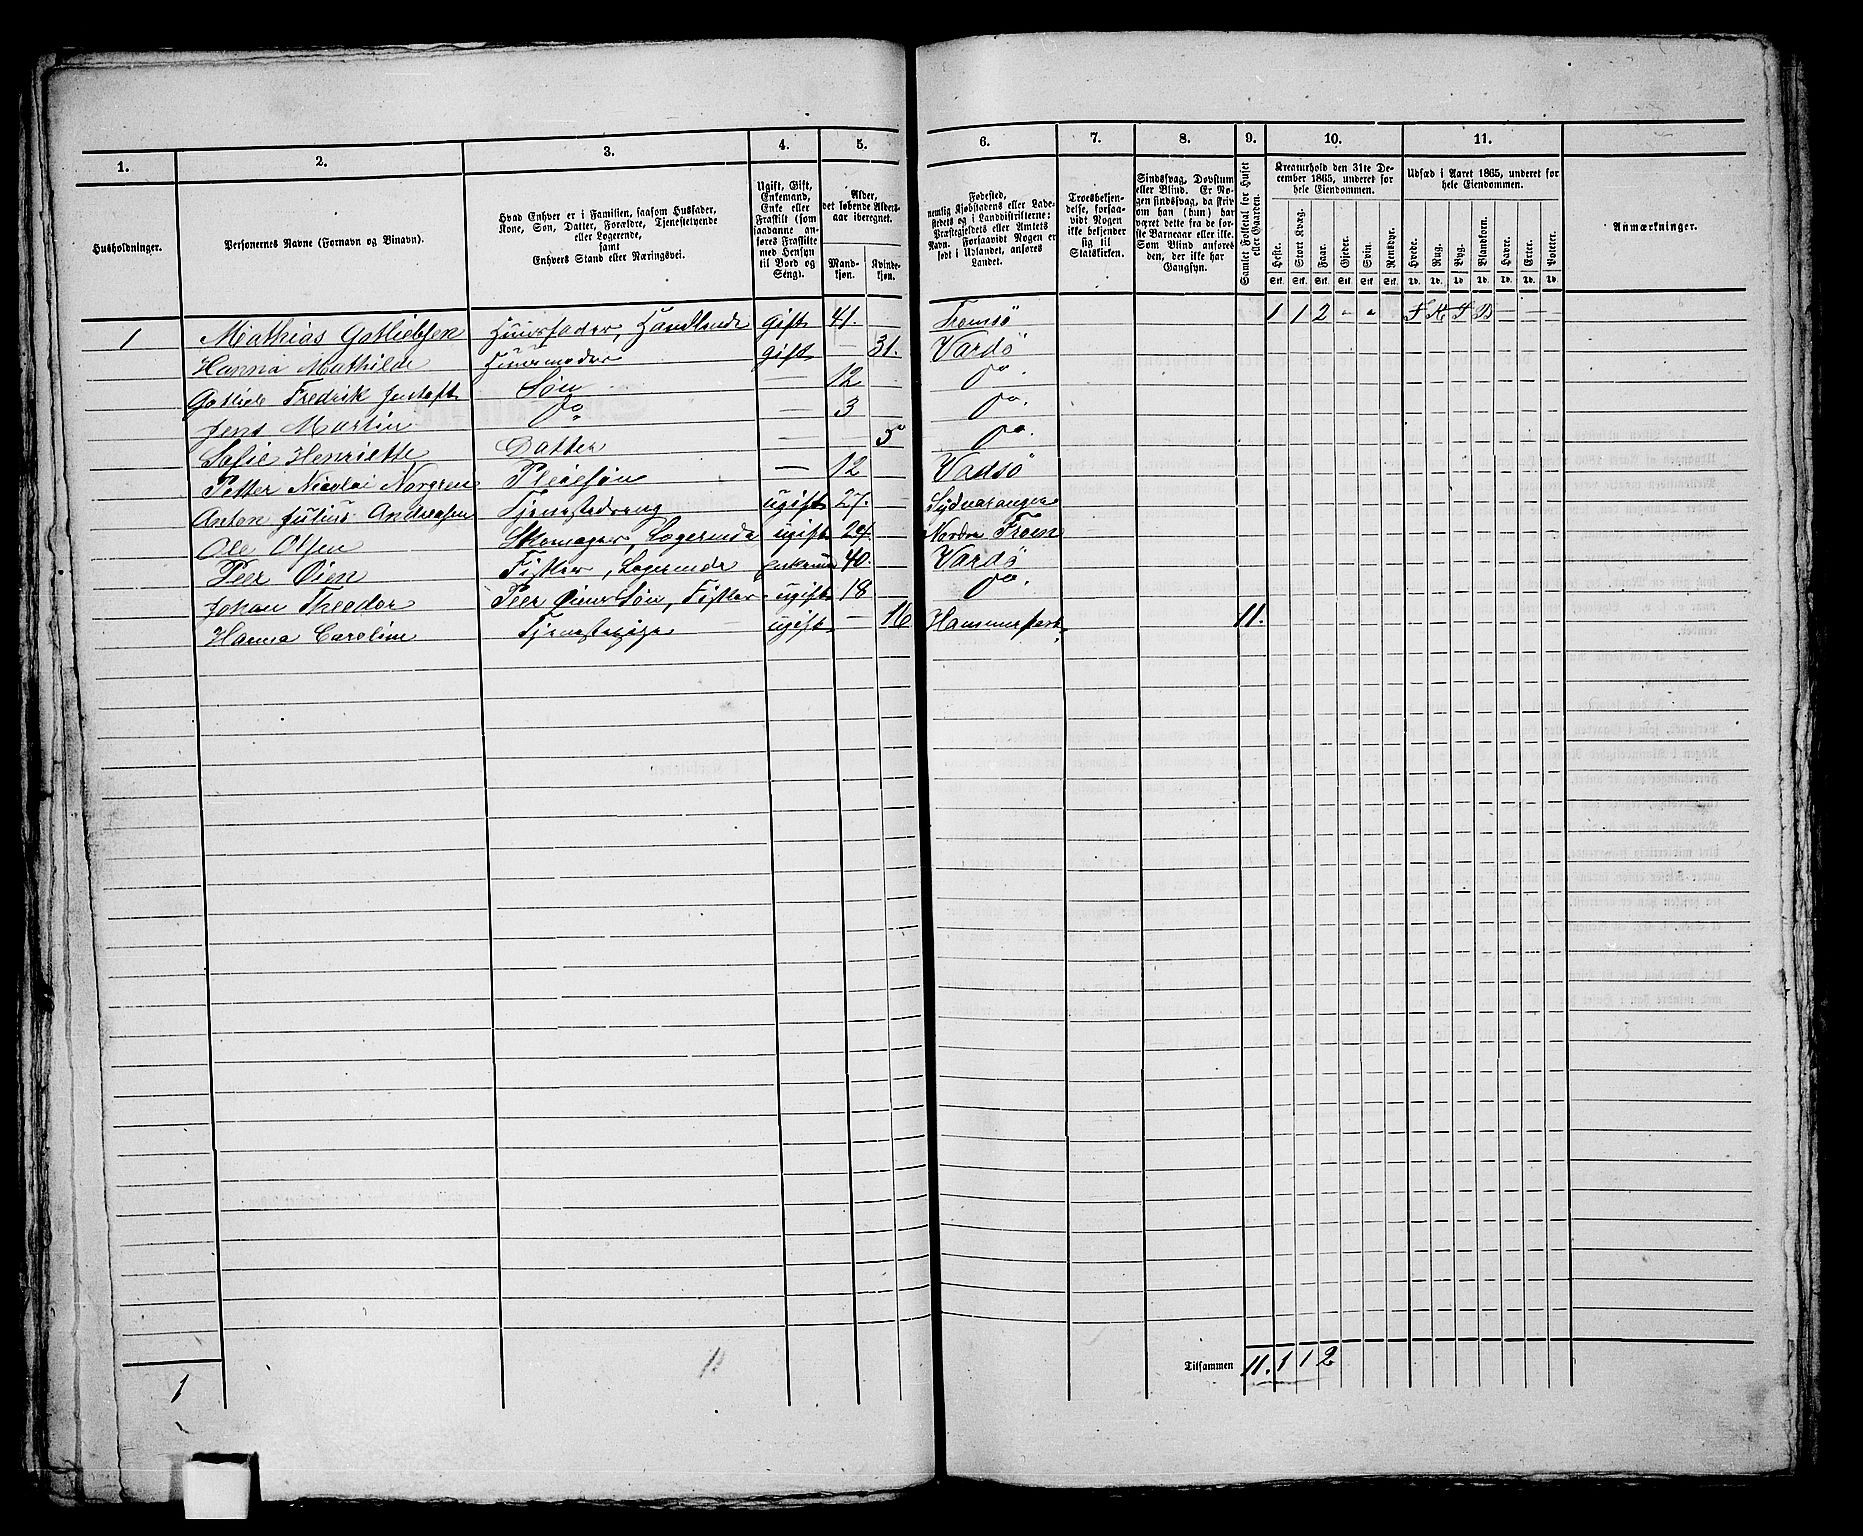 1. 2. 3. 4. 5. 6. 7. 8. 9. 10. 11.
Husholdninger.
Personernes Navne (Fornavn og Binavn).
Hvad Enhver er i Familien, saasom Husfader,
Kone, Søn, Datter, Forældre, Tjenestetyende
eller Logerende,
samt
Enhvers Stand eller Næringsvei.
Ugift, Gift,
Enkemand,
Enke eller
Fraskilt (som
saadanne an-
føres Fraskilte
med Hensyn
til Bord og
Seng).
Alder,
det løbende Alders-
aar iberegnet.
Mand-
kjøn.
Kvinde-
kjøn.
Fødested,
nemlig Kjøbstadens eller Lade-
stedets og i Landdistrikterne:
Præstegjeldets eller Amtets
Navn. Forsaavidt Nogen er
født i Udlandet, anføres
Landet.
Troesbekjen-
delse, forsaa-
vidt Nogen
ikke bekjender
sig til
Statskirken.
Sindssvag, Døvstum
eller Blind. Er No-
gen sindssvag, da skriv
om han (hun) har
været dette fra de før-
ste Barneaar eller ille.
Som Blind anføres
den, der ikke har
Gangsyn.
Samlet Folketal for Huset
eller Gaarden.
Kreaturhold den 31te De-
cember 1865, underet for
hele Eiendommen.
Heste. Stort Kvæg. Faar. Gjeder. Svin. Rensdyr.
Stk. Stk. Stk. Stk. Stk. Stk.
Udsæd i Aaret 1865, underet for
hele Eiendommen.
Hvede. Rug. Byg. Blandkorn. Havre. Erter. Poteter.
Td. Td. Td. Td. Td. Td. Td.
Anmærkninger.
1 Mathias Gotliebsen Huusfader, Handlende gift 41. Tromsö 1 1 2 - -
Hanna Mathilde Huusmoder gift — 31. Vardö
Gotlieb Fredrik Søn — 12 do.
Jens Martin do — 3 do.
Sofie Henriette Datter — 5 do.
Petter Nicolai Norgren Pleiesøn — 12 Vadsö
Anton Julius Andreasen Tjenestedreng ugift 27. Sydvaranger
Ole Olsen Skomager, Logerende ugift Nordre Froen
Peer Øien Fisker, Logerende Enkemand 40. Vardö
Johan Theodor Peer Øiens Søn, Fisker ugift 18 do.
Hanna Caroline Tjenestepige ugift — 16 Hammerfest 11.
1
Tilsammen 11. 1 1 2